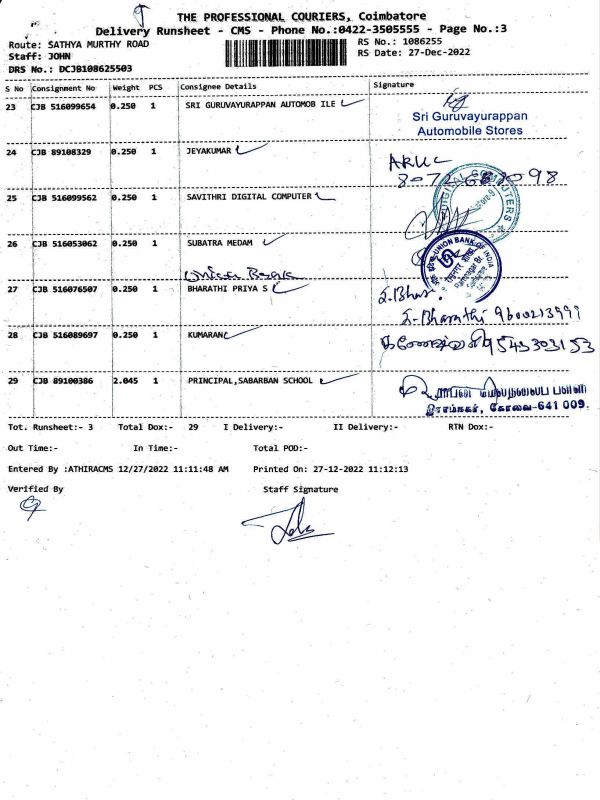 THE PROFESSIONAL COURIERS, Coimbatore
Delivery Runsheet - CMS - Phone No.:0422-3505555 - Page No.:3
Route: SATHYA MURTHY ROAD
RS No.: 1086255
Staff: JOHN
RS Date: 27-Dec-2022
DRS No.: DCJB108625503
S No Consignment No Weight PCS Consignee Details Signature
23 CJB 516099654 0.250 1 SRI GURUVAYURAPPAN AUTOMOB ILE
Sri Guruvayurappan
Automobile Stores
24 CJB 89108329 0.250 1 JEYAKUMAR
25 CJB 516099562 0.250 1 SAVITHRI DIGITAL COMPUTER
26 CJB 516053062 0.250 1 SUBATRA MEDAM
UNION BANK OF INDIA
27 CJB 516076507 0.250 1 BHARATHI PRIYA S
S.Bhar.
S-Bharathi 9600213999
28 CJB 516089697 0.250 1 KUMARAN
9543303153
29 CJB 89100386 2.045 1 PRINCIPAL,SABARBAN SCHOOL
ராம்நகர், கோவை-641 009.
Tot. Runsheet:- 3 Total Dox:- 29 I Delivery:- II Delivery:- RTN Dox:-
Out Time:- In Time:- Total POD:-
Entered By :ATHIRACMS 12/27/2022 11:11:48 AM Printed On: 27-12-2022 11:12:13
Verified By Staff Signature